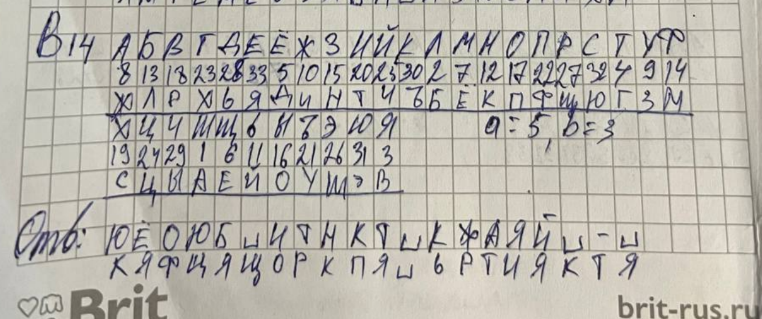 В14 А Б В Г Д Е Ё Ж З И Й К Л М Н О П Р С Т У Ф
8 13 18 23 28 33 5 10 15 20 25 30 2 7 12 17 22 27 32 4 9 14
Ж Л Р Х Ь Я Д И Н Т Ч Ъ Б Ё К П Ф Щ Ю Г З М
Х Ц Ч Ш Щ Ь Ы Ъ Э Ю Я a=5, b=3
19 24 29 1 6 11 16 21 26 31 3
С Ц Ы А Е Й О У Ш Э В
Отв: Ю Ё О Ю Б ␣ И Т Н К Т ␣ К Ж А Я Й ␣ - ␣
К Я Ф Щ Я Щ О Р К П Я ␣ Ь Р Т И Я К Т Я
Brit brit-rus.ru